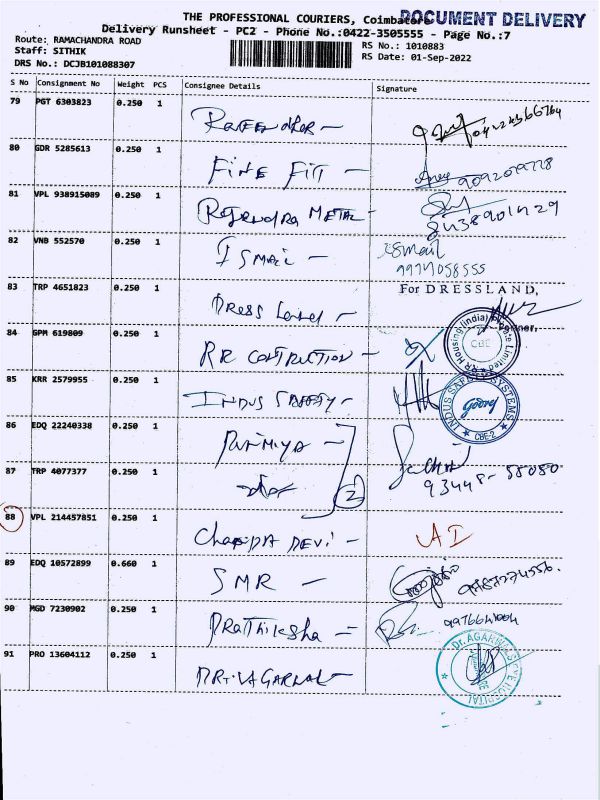 THE PROFESSIONAL COURIERS, Coimbatore
DOCUMENT DELIVERY
Delivery Runsheet - PC2 - Phone No.:0422-3505555 - Page No.:7
Route: RAMACHANDRA ROAD
RS No.: 1010883
Staff: SITHIK
RS Date: 01-Sep-2022
DRS No.: DCJB101088307
S No Consignment No Weight PCS Consignee Details Signature
79 PGT 6303823 0.250 1
80 GDR 5285613 0.250 1 FINE FIT
81 VPL 938915089 0.250 1 Rajendra METAL
82 VNB 552570 0.250 1 ISMAIL Ismail
For DRESSLAND,
83 TRP 4651823 0.250 1 Dress Land
Partner.
84 GPM 619809 0.250 1 RR CONTRUCTION RR Housing (India) Private Limited CBE
85 KRR 2579955 0.250 1 INDUS SAFETY INDUS SAFETY SYSTEMS Godrej CBE-2
86 EDQ 22240338 0.250 1
87 TRP 4077377 0.250 1 2 93448-58080
88 VPL 214457851 0.250 1 Chandra DEVI
89 EDQ 10572899 0.660 1 SMR
90 MGD 7230902 0.250 1 PRathiksha
91 PRO 13604112 0.250 1 DR. AGARWAL Dr. AGARWAL'S EYE HOSPITAL